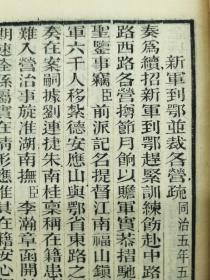 新軍到鄂並裁各營疏 同治五年
奏爲續招新軍到鄂趕緊訓練飭赴中路
路西路各營撙節月餉以贍軍實恭摺馳
聖鑒事竊臣前派記名提督江南福山鎮
軍六千人移紮德安應山與鄂省東路之
奏在案嗣據劉連捷朱南桂稟稱在籍患
難入營治事旋准湖南撫臣李瀚章函開
屬實在情形應准其在籍安心